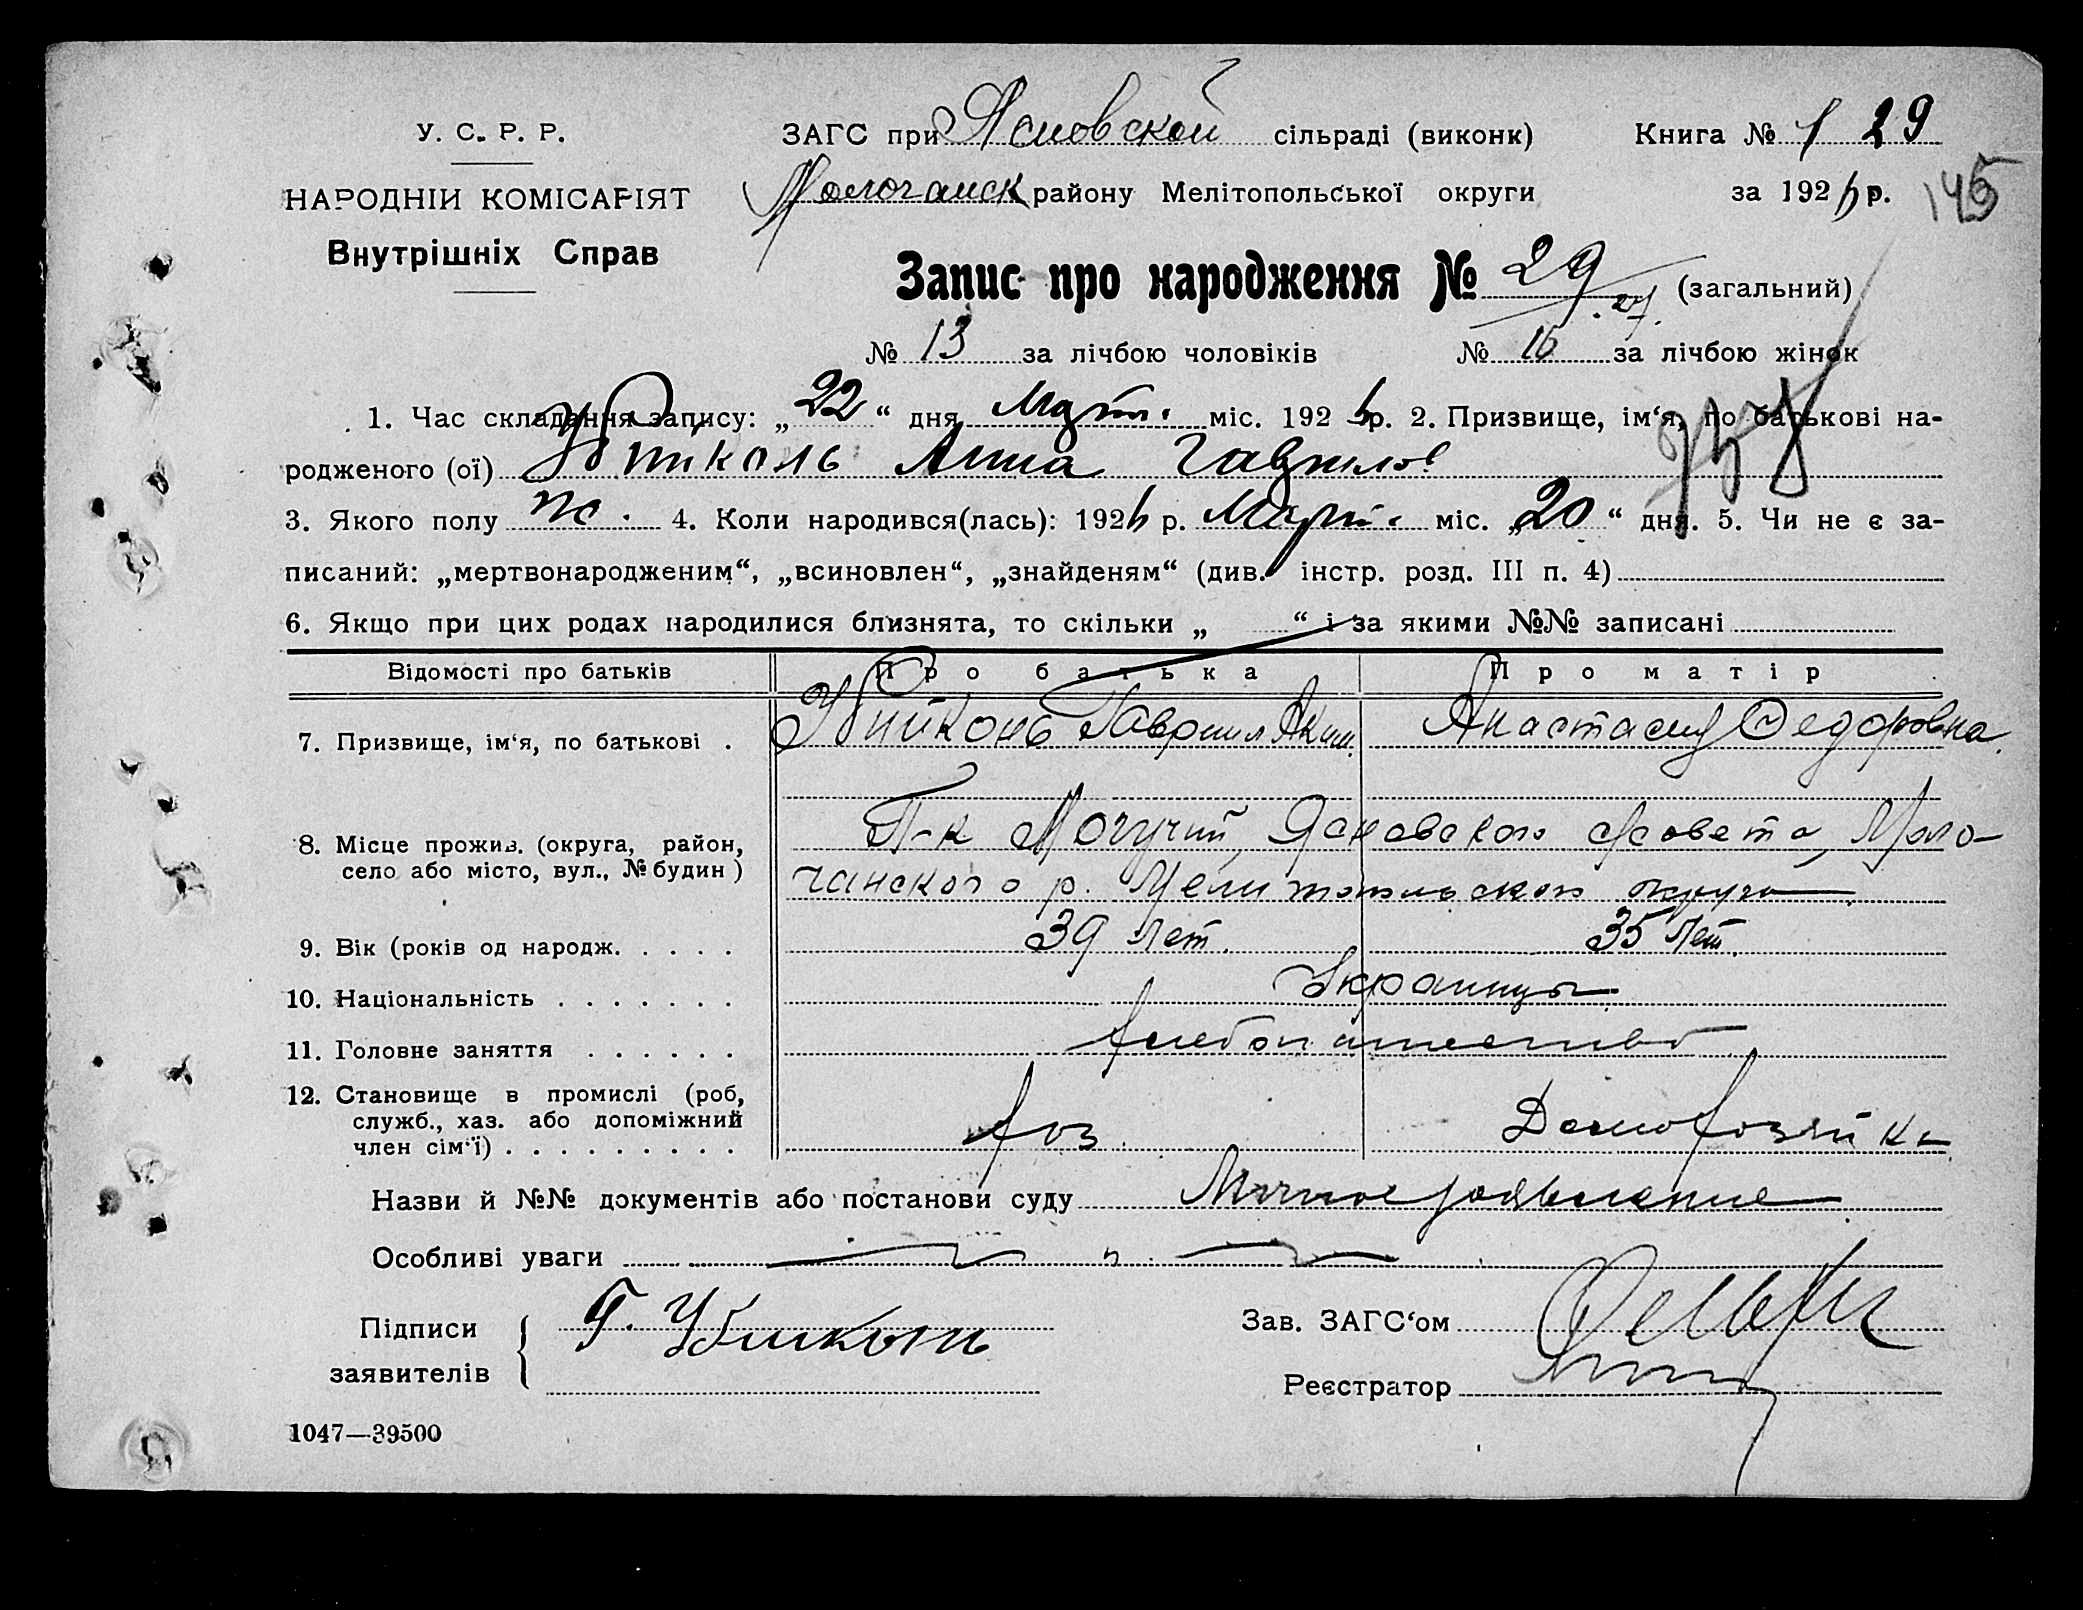 У. С. Р. Р.
НАРОДНІЙ КОМІСАРІЯТ
Внутрішніх Справ
ЗАГС при Ясновской сільраді (виконк)
Молочанск району Мелітопольської округи
Книга № 1 29
за 192 р.
145
Запис про народження № 29 (загальний)
№ 13 за лічбою чоловіків № 16 за лічбою жінок
1. Час складання запису: „22“ дня Март. міс. 192 р. 2. Призвище, ім‘я, по батькові на-
родженого (ої) Анна Гаврилов
3. Якого полу ж. 4. Коли народився(лась): 192 р. Март. міс. „20“ дня. 5. Чи не є за-
писаний: „мертвонародженим“, „всиновлен“, „знайденям“ (див. інстр. розд. III п. 4)
6. Якщо при цих родах народилися близнята, то скільки „ “ і за якими №№ записані
Відомості про батьків Про батька Про матір
7. Призвище, ім‘я, по батькові . Убийконь Гавриил Аким. Анастасия Федоровна.
8. Місце прожив. (округа, район,
село або місто, вул., № будин )
П-к Могучий, Ясновского с/совета, Моло-
чанского р. Мелитопольского округа
9. Вік (років од народж. . . . . 39 лет. 35 лет.
10. Національність . . . . . . . Украинцы
11. Головне заняття . . . . . . хлебопашество
12. Становище в промислі (роб,
служб., хаз. або допоміжний
член сім‘ї) . . . . . . . . . хоз. Домохозяйка
Назви й №№ документів або постанови суду Личное заявление
Особливі уваги
Підписи
заявителів
Г. Убиконь
Зав. ЗАГС‘ом
Реєстратор
1047—39500